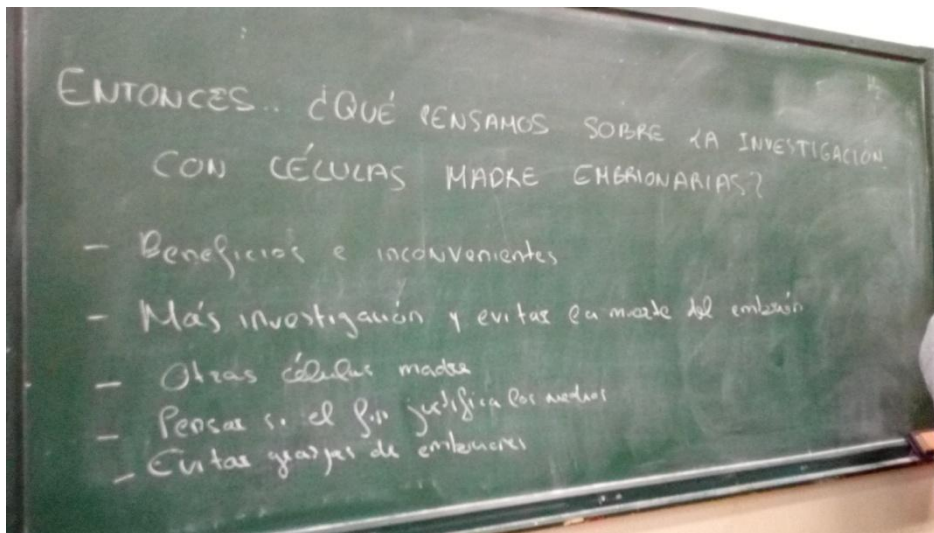 ENTONCES.. ¿QUÉ PENSAMOS SOBRE LA INVESTIGACIÓN
CON CÉLULAS MADRE EMBRIONARIAS?
- Beneficios e inconvenientes
- Más investigación y evitar la muerte del embrión
- Otras células madre
- Pensar si el fin justifica los medios
- Evitar granjas de embriones